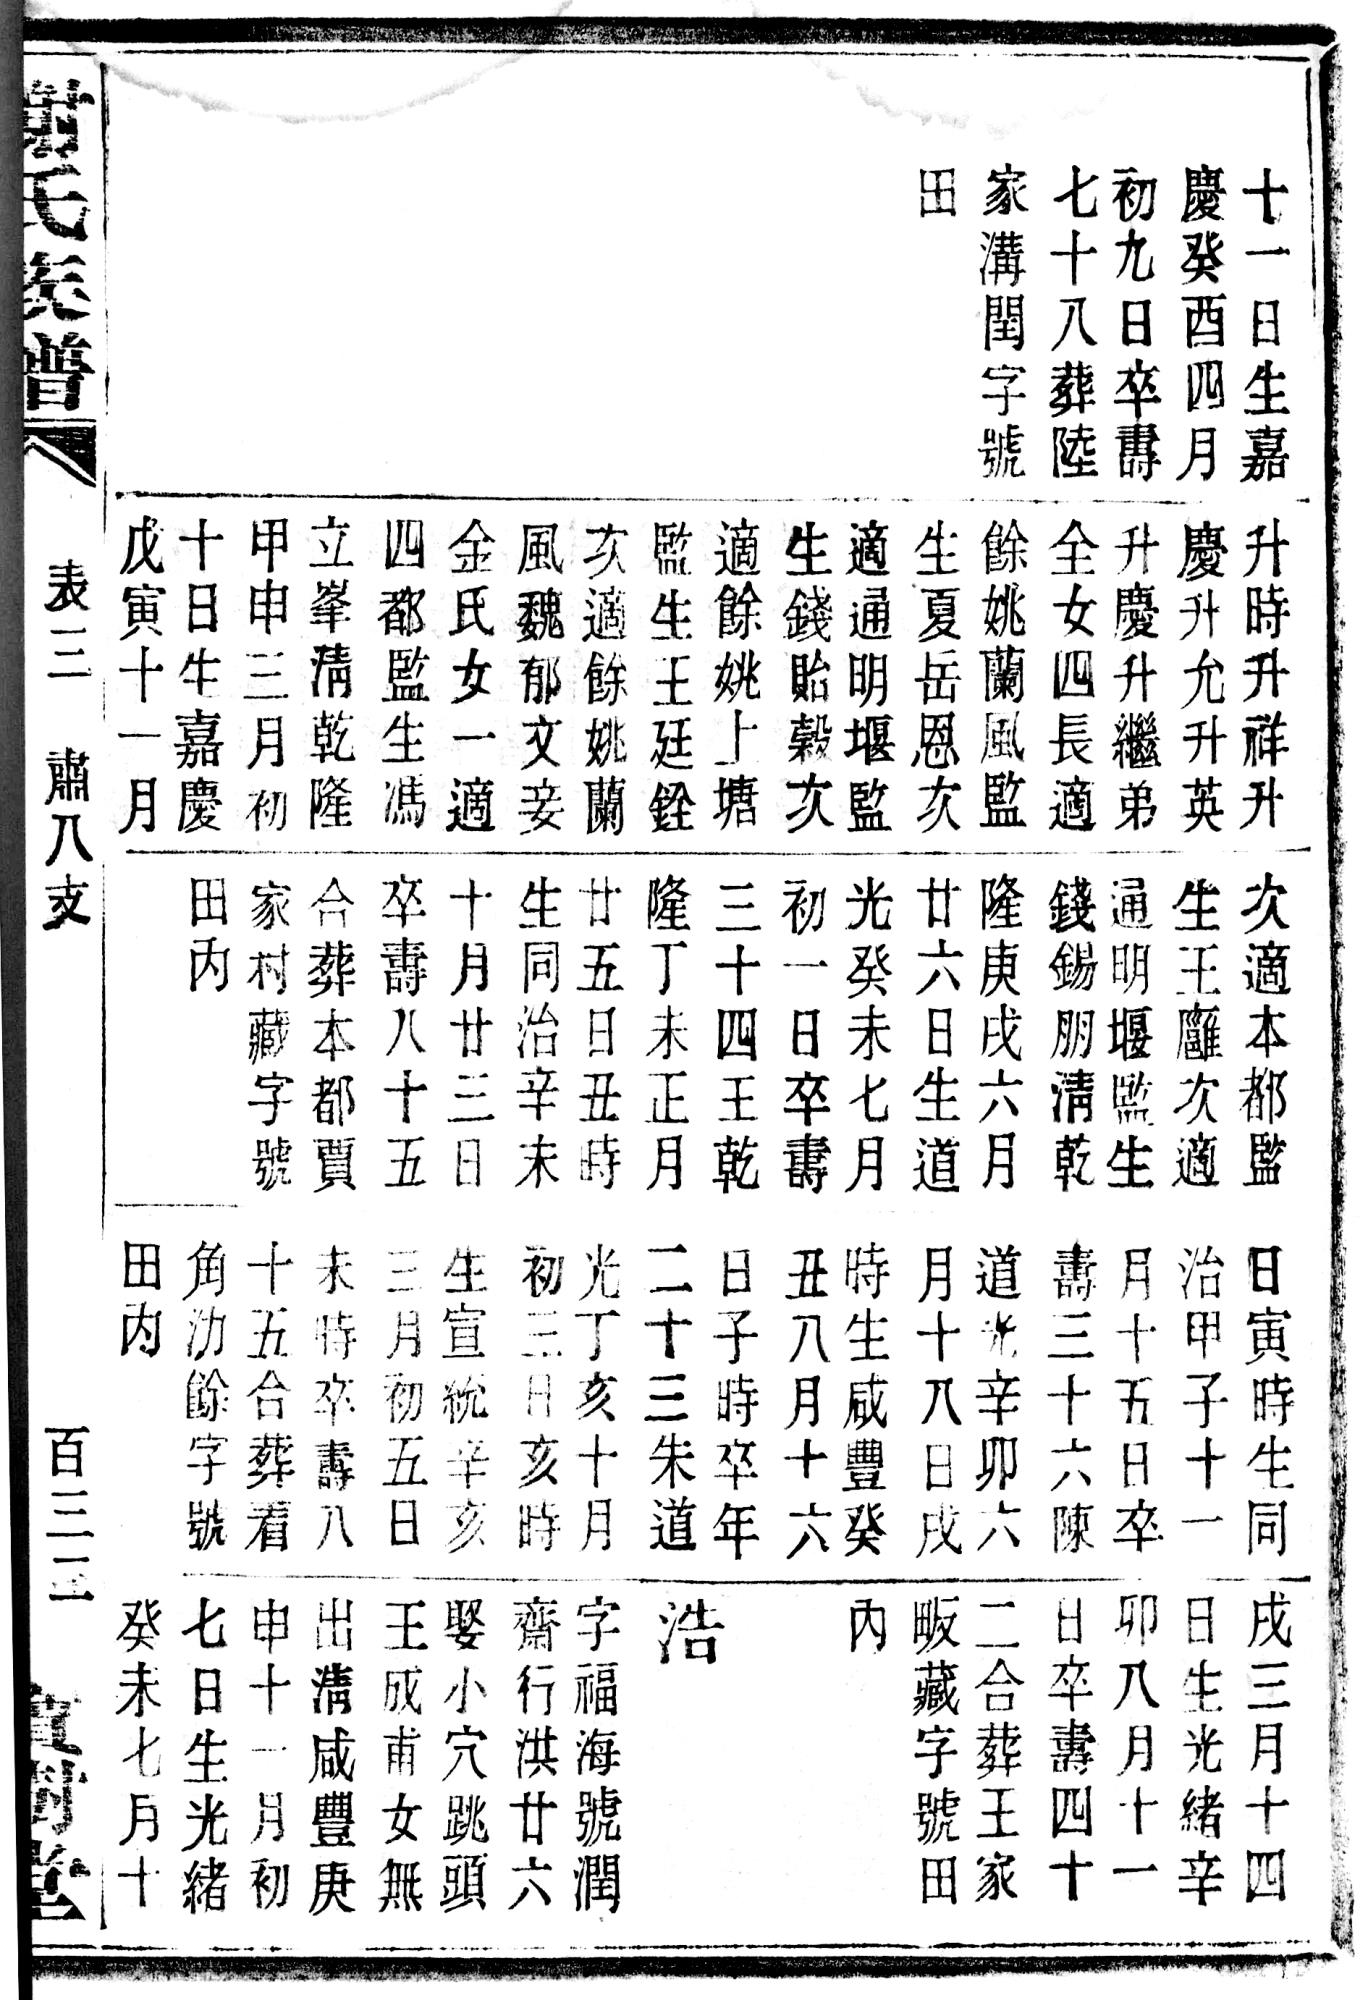 十一日生嘉
慶癸酉四月
初九日卒壽
七十八葬陸
家溝閏字號
田
升時升祥升
慶升允升英
升慶升繼弟
全女四長適
餘姚蘭風監
生夏岳恩次
適通明堰監
生錢貽榖次
適餘姚上塘
監生王廷銓
次適餘姚蘭
風魏郁文妾
金氏女一適
四都監生馮
立峯清乾隆
甲申三月初
十日生嘉慶
戊寅十一月
次適本都監
生王廱次適
通明堰監生
錢錫朋清乾
隆庚戌六月
廿六日生道
光癸未七月
初一日卒壽
三十四王乾
隆丁未正月
廿五日丑時
生同治辛未
十月廿三日
卒壽八十五
合葬本都賈
家村藏字號
田內
日寅時生同
治甲子十一
月十五日卒
壽三十六陳
道光辛卯六
月十八日戌
時生咸豐癸
丑八月十六
日子時卒年
二十三朱道
光丁亥十月
初三日亥時
生宣統辛亥
三月初五日
未時卒壽八
十五合葬看
角沕餘字號
田內
戌三月十四
日生光緒辛
卯八月十一
日卒壽四十
二合葬王家
畈藏字號田
內
浩
字福海號潤
齋行洪廿六
娶小穴跳頭
王成甫女無
出清咸豐庚
申十一月初
七日生光緒
癸未七月十
謝氏族譜
表三
肅八支
百三三
寶樹堂